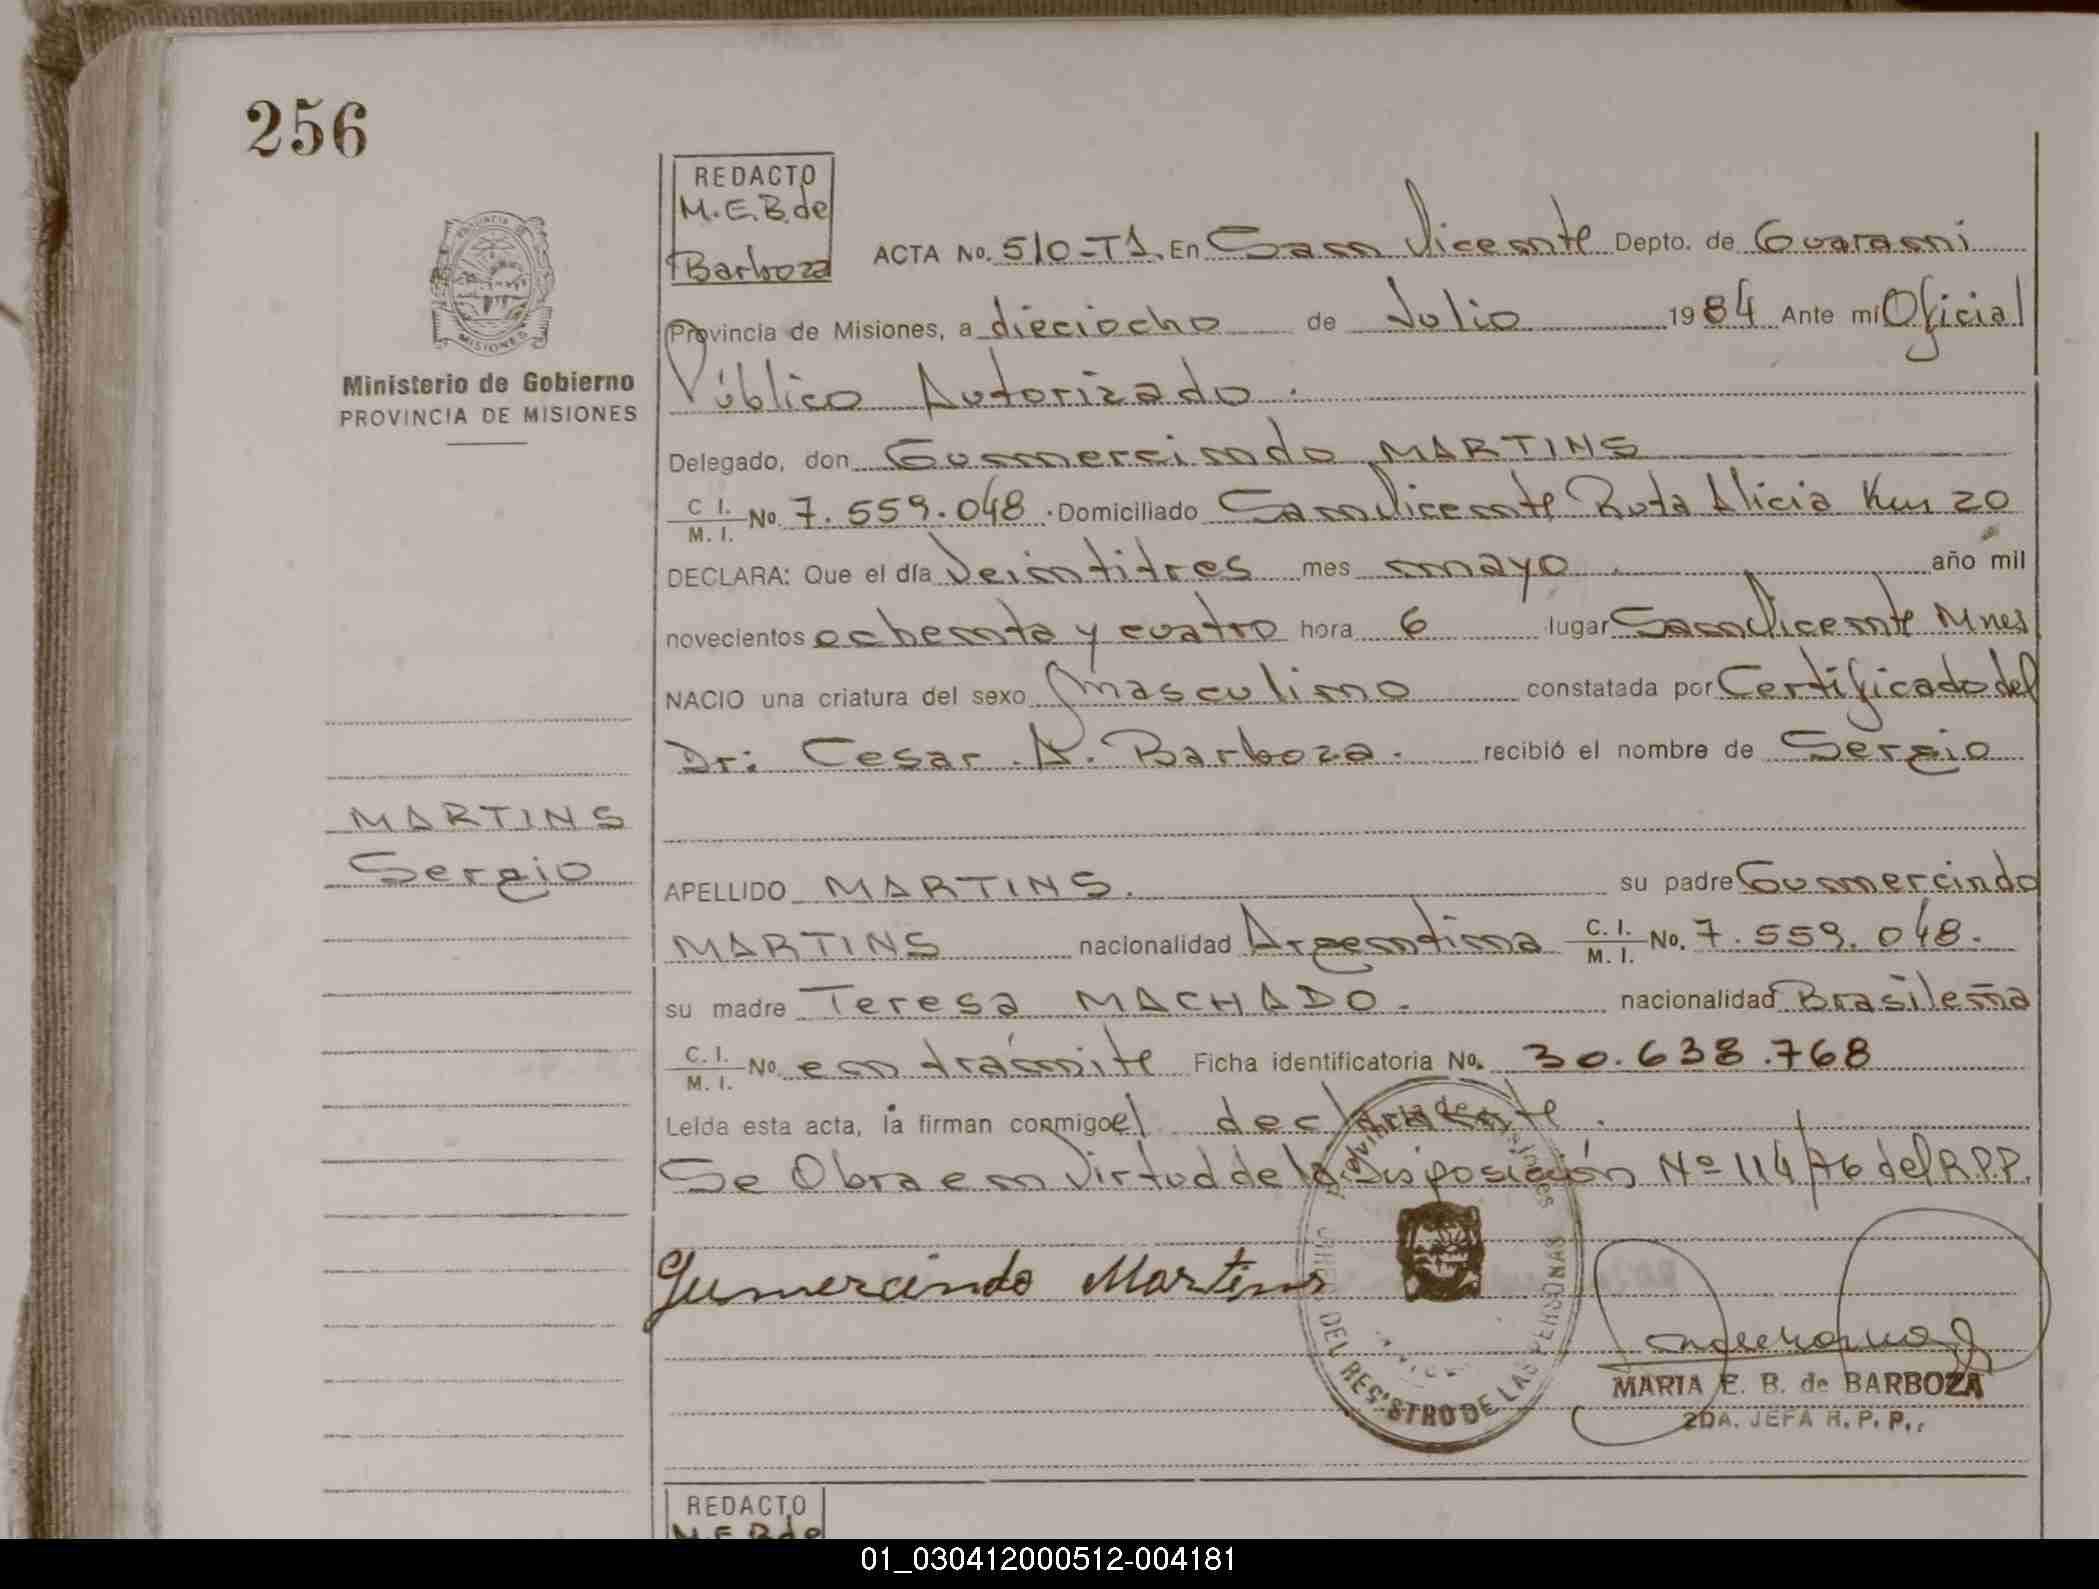 256
REDACTO
M.E.B. de
Barboza
PROVINCIA DE
MISIONES
Ministerio de Gobierno
PROVINCIA DE MISIONES
ACTA No. 510-T1. En San Vicente Depto. de Guarani
Provincia de Misiones, a dieciocho de Julio 1984 Ante mi Oficial
Público Autorizado.
Delegado, don Gumercindo MARTINS
C I. / M. I. No. 7.559.048. Domiciliado San Vicente Ruta Alicia Km 20
DECLARA: Que el día Veintitres mes mayo año mil
novecientos ochenta y cuatro hora 6 lugar San Vicente Mnes
NACIO una criatura del sexo masculino constatada por Certificado del
Dr: Cesar A. Barboza. recibió el nombre de Sergio
MARTINS
Sergio
APELLIDO MARTINS. su padre Gumercindo
MARTINS nacionalidad Argentina C. I. / M. I. No. 7.559.048.
su madre Teresa MACHADO. nacionalidad Brasileña
C. I. / M. I. No. en trámite Ficha identificatoria No. 30.638.768
Leída esta acta, la firman conmigo el declarante.
Se Obra en Virtud de la Disposición Nº 114/76 del R.P.P.
Gumercindo Martins
DEL REGISTRO DE LAS PERSONAS
MARIA E. B. de BARBOZA
2DA. JEFA R. P. P.
REDACTO
M.E.B de
01_030412000512-004181